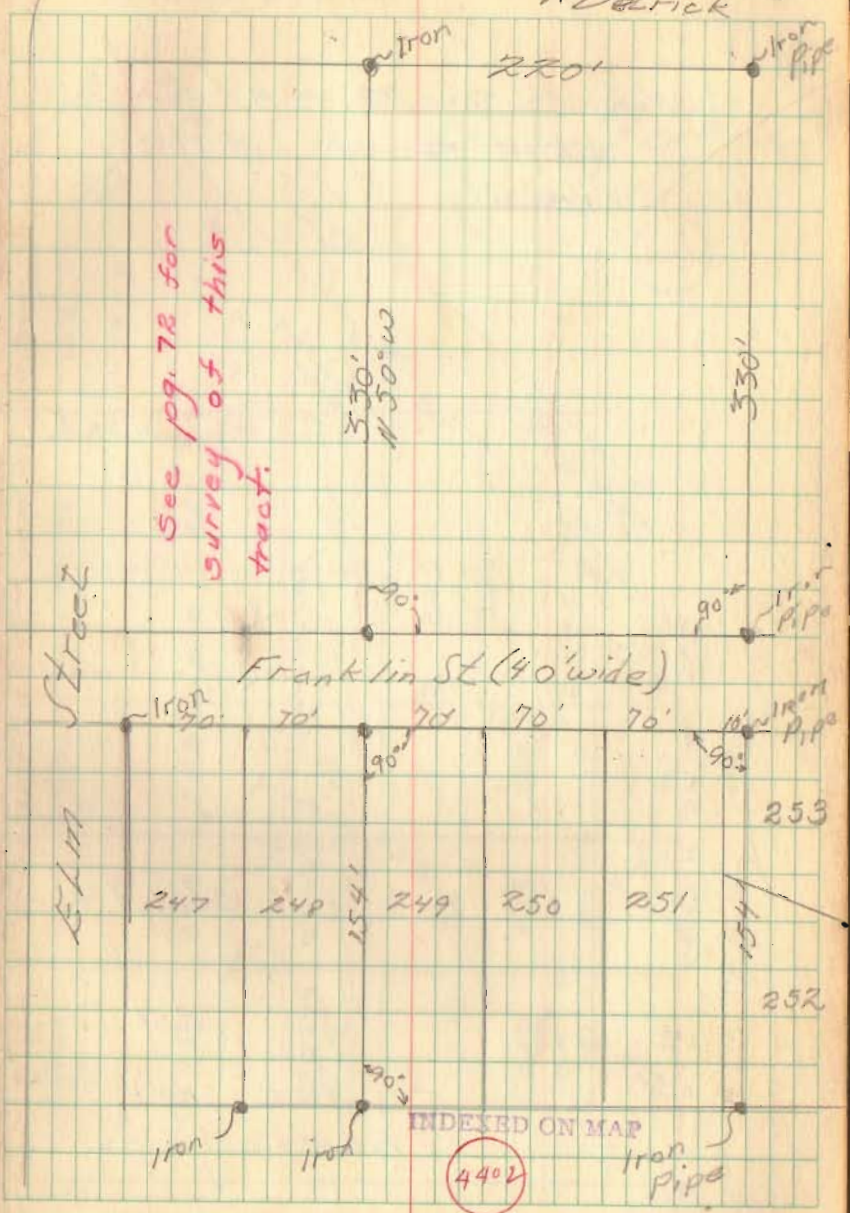 Iron
220'
Iron
Pipe
See pg. 72 for
survey of this
tract.
330'
N 50° W
330'
90°
90°
Iron
Pipe
Street
Elm
Franklin St (40' wide)
Iron
70'
70'
70'
70'
70'
10'
Iron
Pipe
90°
90°
253
247
248
154'
249
250
251
154'
252
90°
iron
iron
INDEXED ON MAP
Iron
Pipe
4402